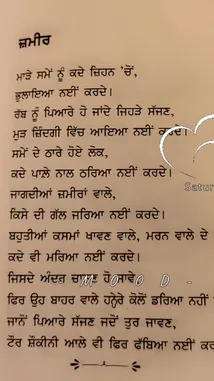 ਜ਼ਮੀਰ
ਮਾੜੇ ਸਮੇਂ ਨੂੰ ਕਦੇ ਜ਼ਿਹਨ 'ਚੋਂ,
ਭੁਲਾਇਆ ਨਈਂ ਕਰਦੇ।
ਰੱਬ ਨੂੰ ਪਿਆਰੇ ਹੋ ਜਾਂਦੇ ਜਿਹੜੇ ਸੱਜਣ,
ਮੁੜ ਜ਼ਿੰਦਗੀ ਵਿੱਚ ਆਇਆ ਨਈਂ ਕਰਦੇ।
ਸਮੇਂ ਦੇ ਠਾਰੇ ਹੋਏ ਲੋਕ,
ਕਦੇ ਪਾਲ਼ੇ ਨਾਲ ਠਰਿਆ ਨਈਂ ਕਰਦੇ।
ਜਾਗਦੀਆਂ ਜ਼ਮੀਰਾਂ ਵਾਲੇ,
Satur
ਕਿਸੇ ਦੀ ਗੱਲ ਜਰਿਆ ਨਈਂ ਕਰਦੇ।
ਬਹੁਤੀਆਂ ਕਸਮਾਂ ਖਾਵਣ ਵਾਲੇ, ਮਰਨ ਵਾਲੇ ਦੇ
ਕਦੇ ਵੀ ਮਰਿਆ ਨਈਂ ਕਰਦੇ।
ਜਿਸਦੇ ਅੰਦਰ ਚਾਨਣ ਹੋ ਜਾਵੇ
M O O D
ਫਿਰ ਉਹ ਬਾਹਰ ਵਾਲੇ ਹਨ੍ਹੇਰੇ ਕੋਲੋਂ ਡਰਿਆ ਨਹੀਂ
ਜਾਨੋਂ ਪਿਆਰੇ ਸੱਜਣ ਜਦੋਂ ਤੁਰ ਜਾਵਣ,
ਟੌਰ ਸ਼ੌਕੀਨੀ ਆਲੇ ਵੀ ਫਿਰ ਫੱਬਿਆ ਨਈਂ ਕਰ